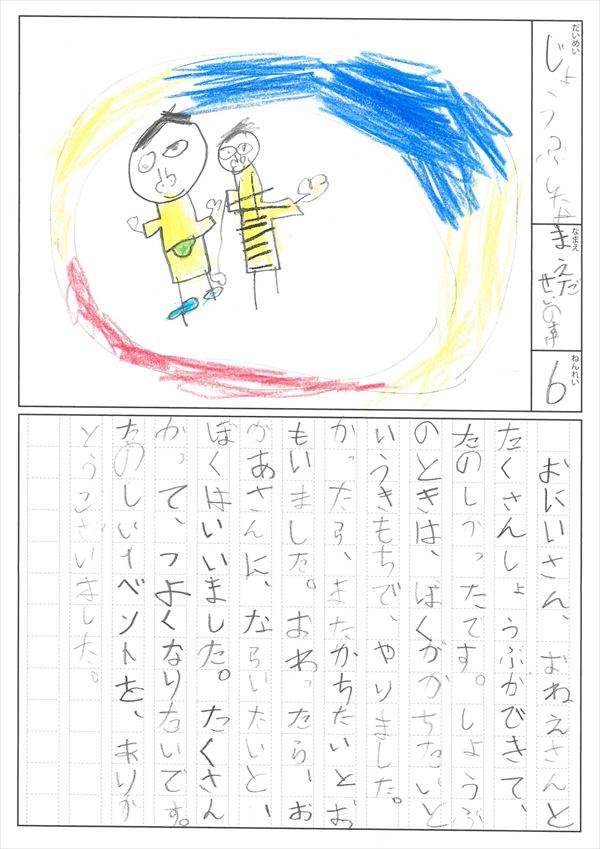 だいめい
じょうふした
なまえ
まえだ
ねんれい
6
おにいさん、おねえさんと
たくさんしょうぶができて、
たのしかったです。しょうぶ
のときは、ぼくがかちたいと
いうきもちで、やりました。
かったら、またかちたいとお
もいました。おわったら、お
かあさんに、ならいたいと、
ぼくはいいました。たくさん
かって、つよくなりたいです。
たのしいイベントを、ありが
とうございました。